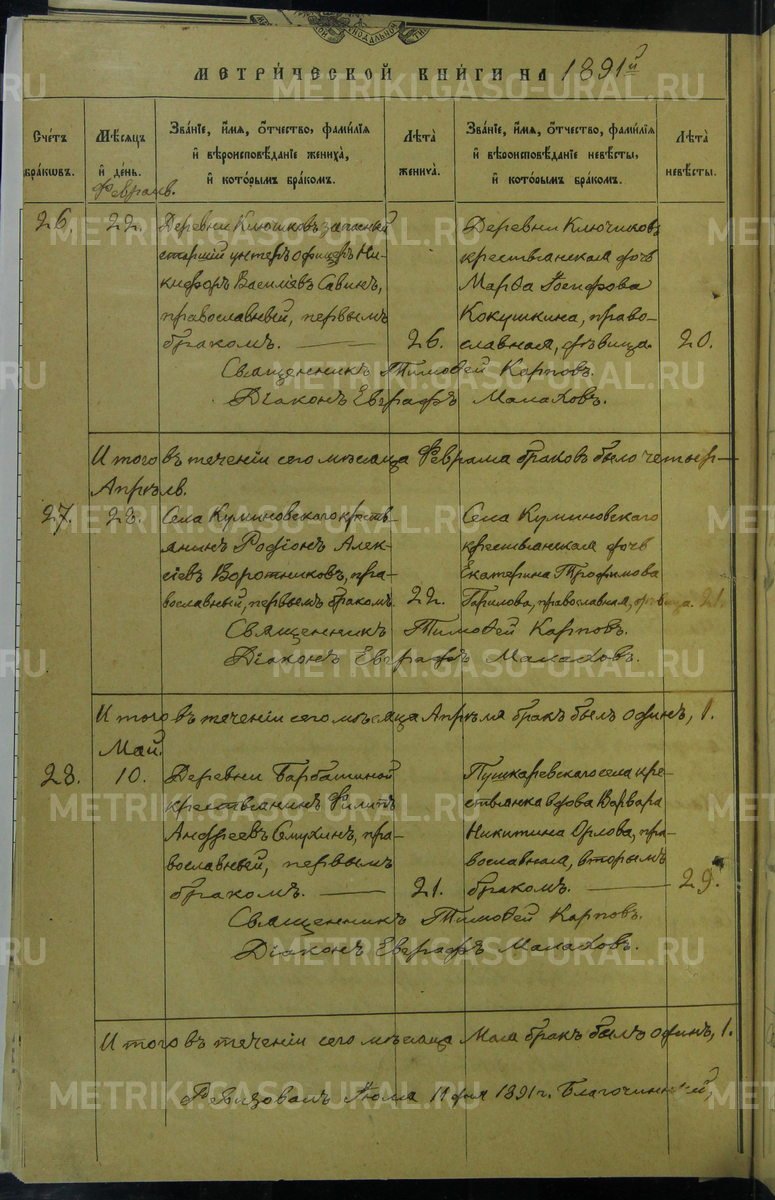 МЕТРИЧЕСКОЙ КНИГИ НА 1891й
Счетъ браковъ.
Мѣсяцъ и день.
Званіе, имя, отчество, фамилія и вѣроисповѣданіе жениха, и которымъ бракомъ.
Лѣта жениха.
Званіе, имя, отчество, фамилія и вѣроисповѣданіе невѣсты, и которымъ бракомъ.
Лѣта невѣсты.
Февраль.
26. 22. Деревни Ключиковъ запасный
старшій унтеръ офицеръ Ни-
кифоръ Василіевъ Савинъ,
православный, первымъ
бракомъ. 26.
Деревни Ключиковъ
крестьянская дочь
Марѳа Іосифова
Кокушкина, право-
славная, дѣвица. 20.
Священникъ Тимоѳей Карповъ.
Діаконъ Евграфъ Малаховъ.
Итого въ теченіи сего мѣсяца Февраля браковъ было четыр-
Апрѣль.
27. 28. Села Куминовскаго кресть-
янинъ Родіонъ Алек-
сіевъ Воротниковъ, пра-
вославный, первымъ бракомъ. 22.
Села Куминовскаго
крестьянская дочь
Екатерина Трофимова
православная, дѣвица. 21.
Священникъ Тимоѳей Карповъ.
Діаконъ Евграфъ Малаховъ.
Итого въ теченіи сего мѣсяца Апрѣля бракъ былъ одинъ, 1.
Май.
28. 10. Деревни Барбашиной
крестьянинъ Филиппъ
Андреевъ Смухинъ, пра-
вославный, первымъ
бракомъ. 21.
Пушкаревскаго села кре-
стьянка вдова Варвара
Никитина Орлова, пра-
вославная, вторымъ
бракомъ. 29.
Священникъ Тимоѳей Карповъ.
Діаконъ Евграфъ Малаховъ.
Итого въ теченіи сего мѣсяца Мая бракъ былъ одинъ, 1.
Ревизовалъ Іюля 11 дня 1891 г. Благочинный,
METRIKI.GASO-URAL.RU